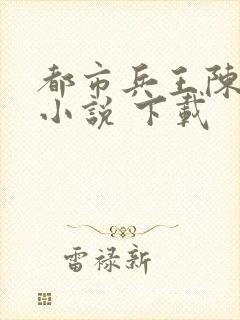 都市兵王陳
小說 下載
雷祿新